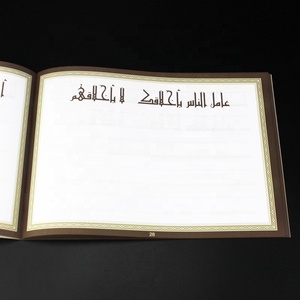 عامل الناس بأخلاقك لا بأخلاقهم